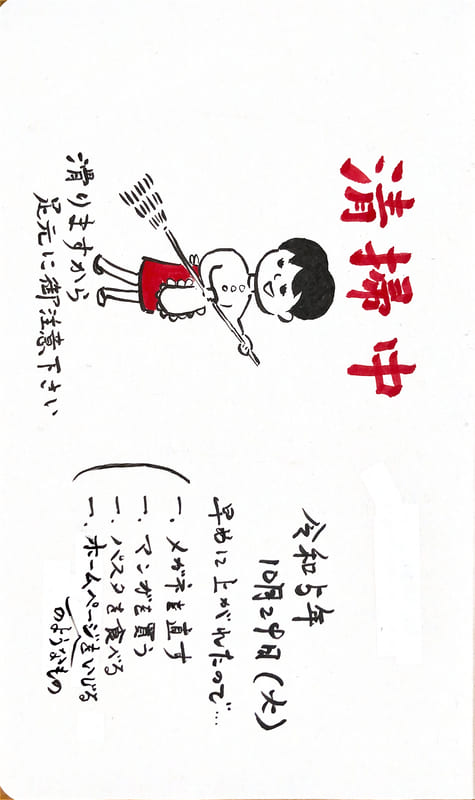 清掃中
滑りますから
足元に御注意下さい
令和5年
10月24日(火)
早めに上がれたので…
一.メガネを直す
一.マンガを買う
一.バスクを食べる
一.ホームページをいじる
のようなもの